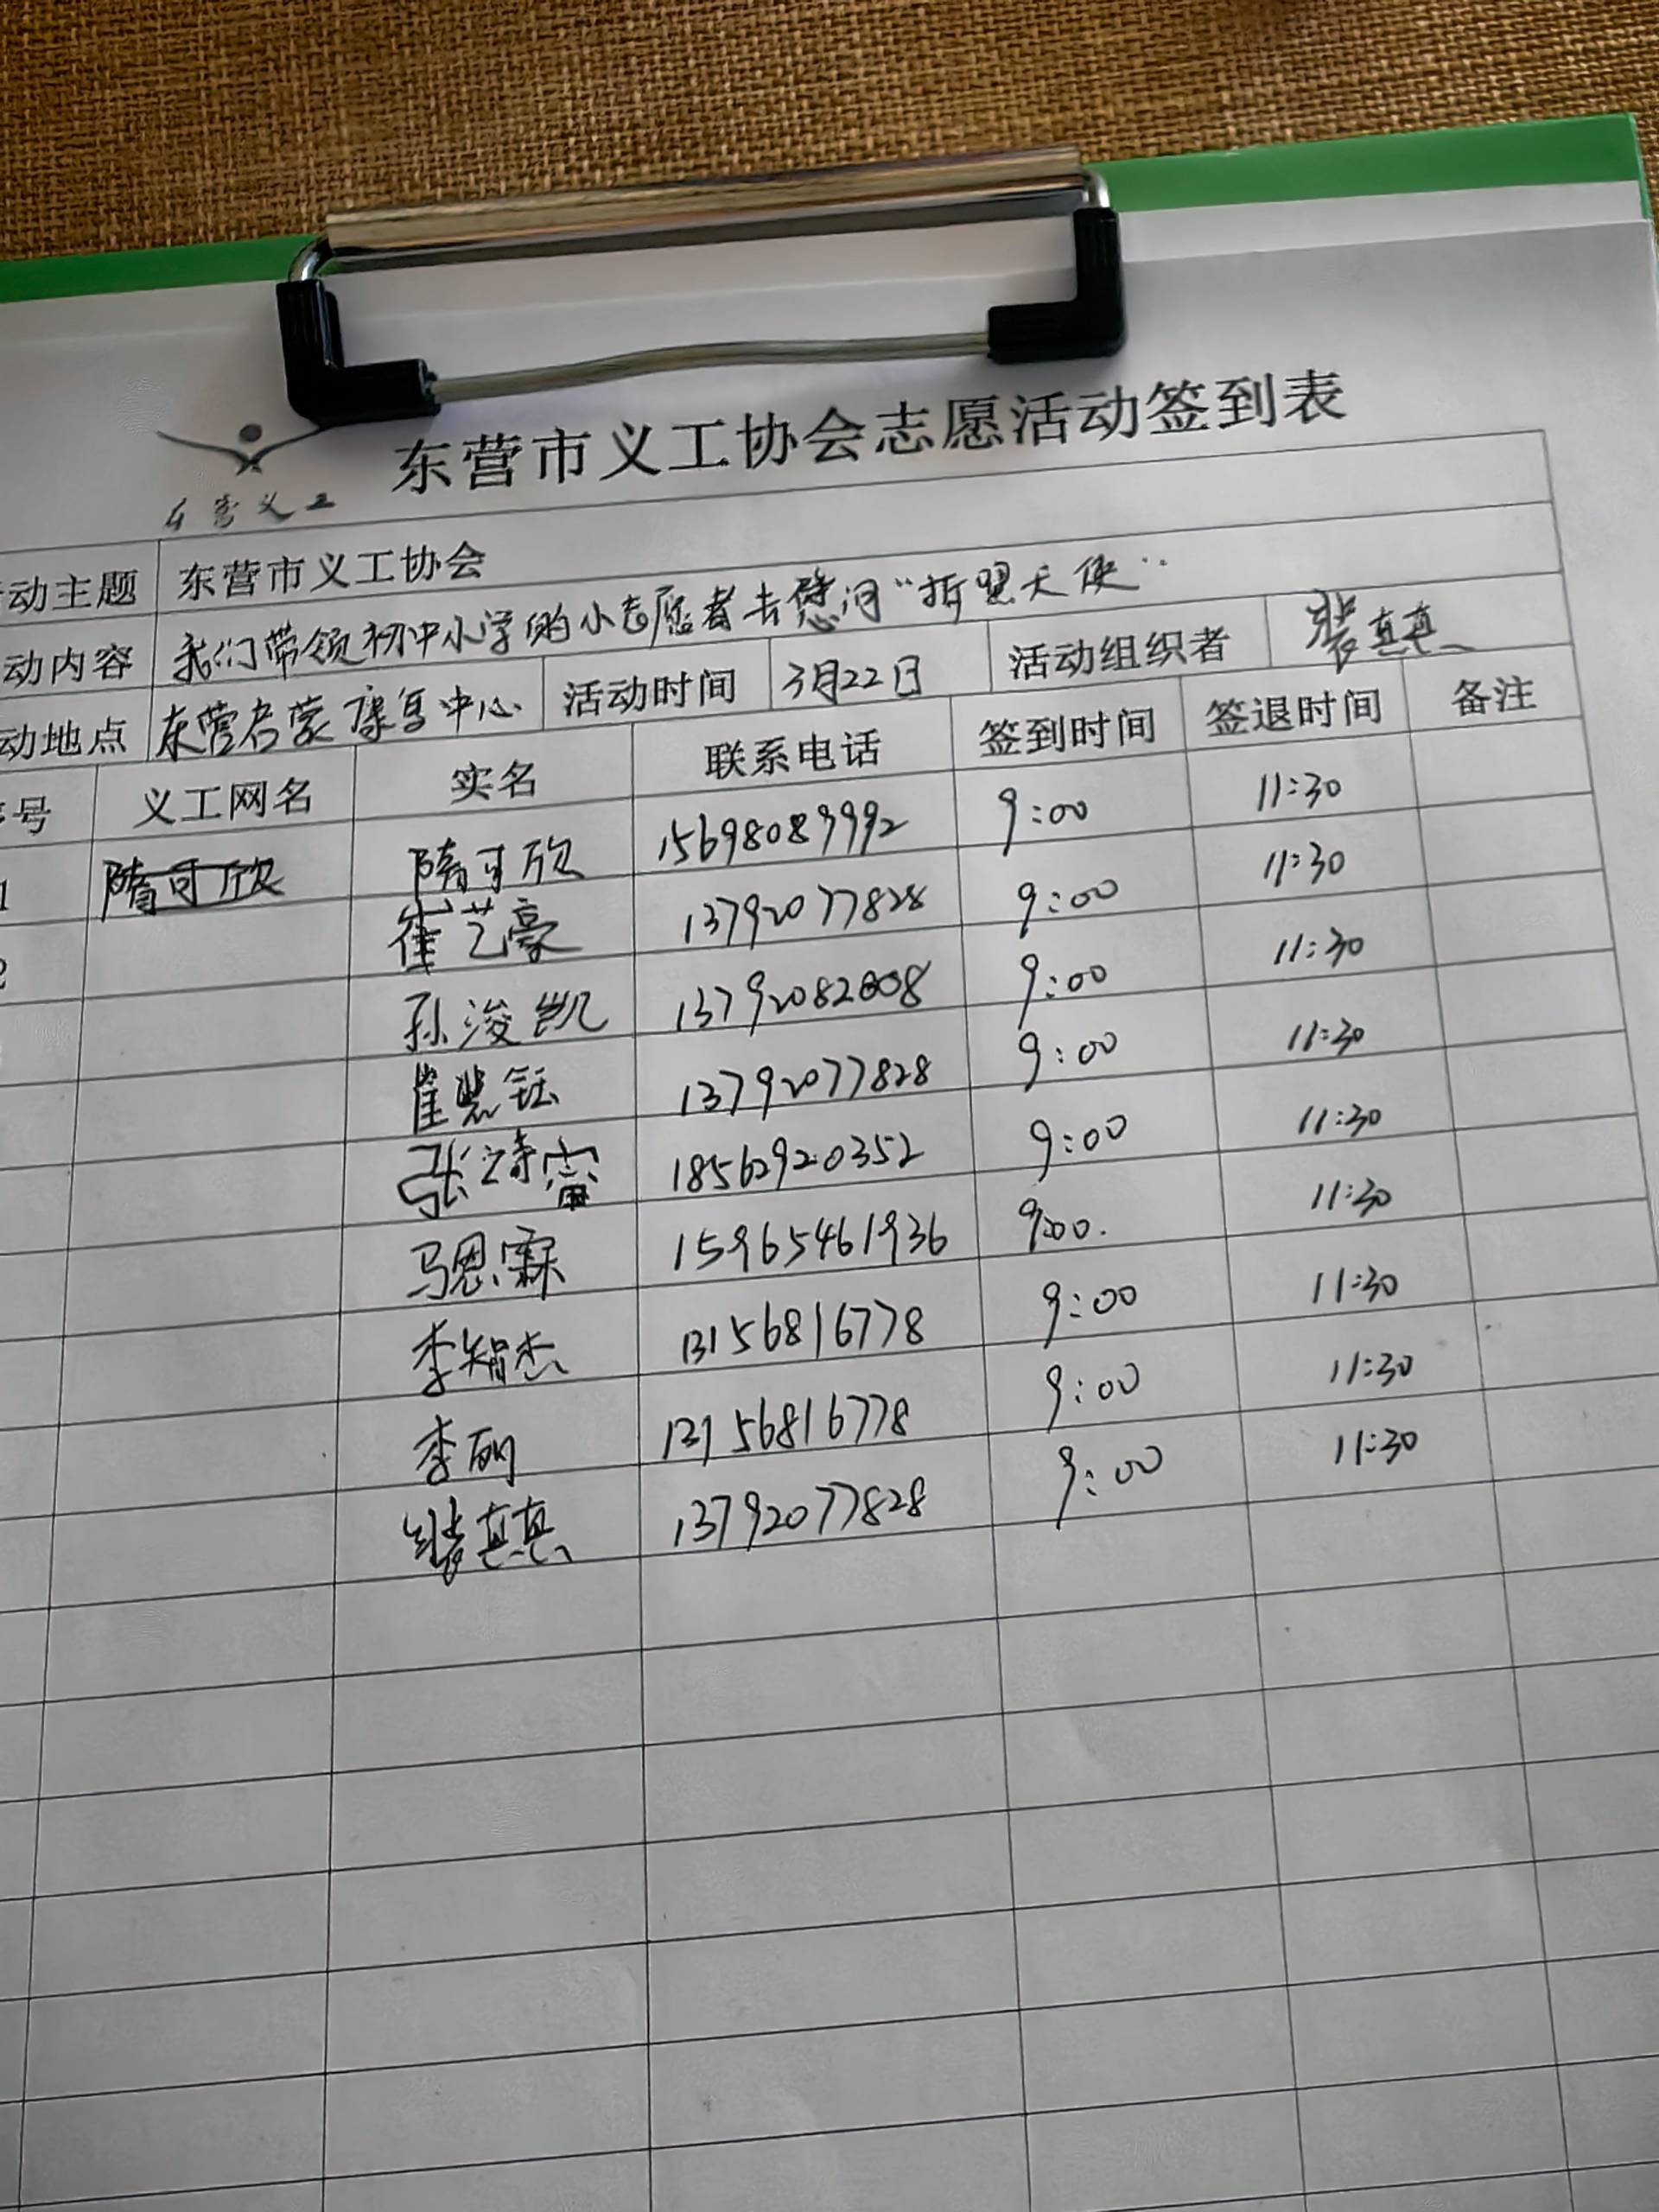 东营市义工协会志愿活动签到表
东营义工
动主题 东营市义工协会
动内容 我们带领初中小学的小志愿者去慰问“折翼天使”
动地点 东营启蒙康复中心 活动时间 3月22日 活动组织者 裴真真
号 义工网名 实名 联系电话 签到时间 签退时间 备注
1 隋可欣 隋可欣 15698089992 9:00 11:30
2 崔艺豪 13792077828 9:00 11:30
孙浚凯 13792082808 9:00 11:30
崔慧钰 13792077828 9:00 11:30
张诗雷 18562920352 9:00 11:30
马恩霖 15965461936 9:00. 11:30
李智杰 13156816778 9:00 11:30
李丽 13156816778 9:00 11:30
裴真真 13792077828 9:00 11:30